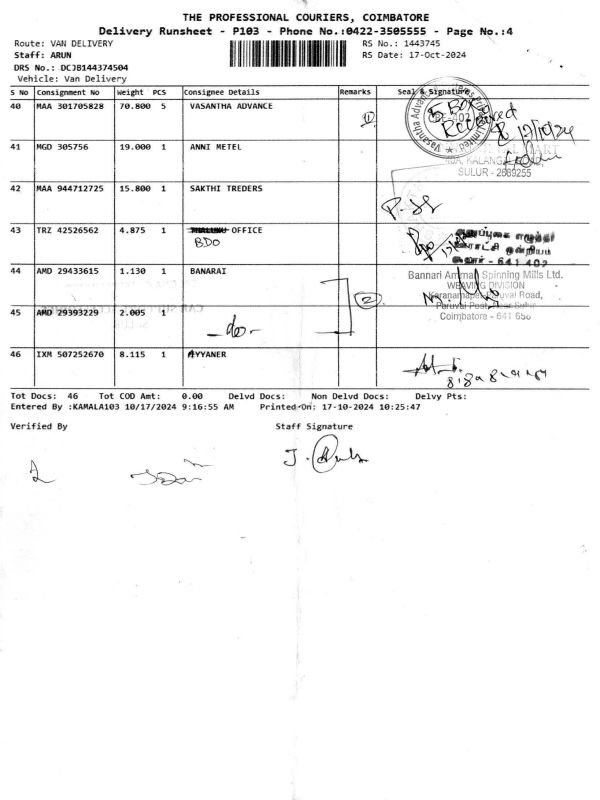 THE PROFESSIONAL COURIERS, COIMBATORE
Delivery Runsheet - P103 - Phone No.:0422-3505555 - Page No.:4
Route: VAN DELIVERY RS No.: 1443745
Staff: ARUN RS Date: 17-Oct-2024
DRS No.: DCJB144374504
Vehicle: Van Delivery
S No Consignment No Weight PCS Consignee Details Remarks Seal & Signature
40 MAA 301705828 70.800 5 VASANTHA ADVANCE ① 5 BOX Received
41 MGD 305756 19.000 1 ANNI METEL
SULUR - 2689255
42 MAA 944712725 15.800 1 SAKTHI TREDERS
43 TRZ 42526562 4.875 1 OFFICE
BDO
சூலூர் - 641 402
44 AMD 29433615 1.130 1 BANARAI ②
Bannari Amman Spinning Mills Ltd.
WEAVING DIVISION
Karanampet Paruvai Road,
Paruvai Post, Near Sulur
Coimbatore - 641 658
45 AMD 29393229 2.005 1 -do-
46 IXM 507252670 8.115 1 AYYANER
Tot Docs: 46 Tot COD Amt: 0.00 Delvd Docs: Non Delvd Docs: Delvy Pts:
Entered By :KAMALA103 10/17/2024 9:16:55 AM Printed On: 17-10-2024 10:25:47
Verified By Staff Signature